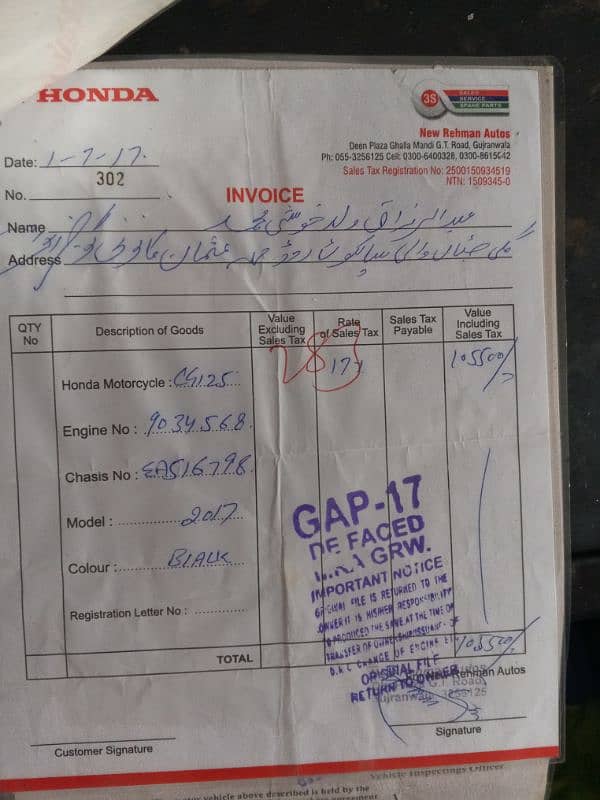 HONDA
3S
SALES
SERVICE
SPARE PARTS
New Rehman Autos
Deen Plaza Ghalla Mandi G.T. Road, Gujranwala
Ph: 055-3256125 Cell: 0300-6400326, 0300-8615642
Sales Tax Registration No: 2500150934519
NTN: 1509345-0
Date: 1-7-17
No. 302
INVOICE
Name عبدالرزاق ولد خوشی محمد
Address گلی
QTY No Description of Goods Value Excluding Sales Tax Rate of Sales Tax Sales Tax Payable Value Including Sales Tax
283
Honda Motorcycle : CG125 17% 105500/-
Engine No : 9034568
Chasis No : EA516798
Model : 2017
Colour : Black
Registration Letter No :
TOTAL 105500/-
GAP-17
DEFACED
GRW.
IMPORTANT NOTICE
ORIGINAL FILE IS RETURNED TO THE
OWNER IT IS HIS/HER RESPONSIBILITY
TO PRODUCED THE SAME AT THE TIME OF
TRANSFER OF OWNERSHIP
CHANGE OF ENGINE
ORIGINAL FILE
RETURN TO OWNER
New Rehman Autos
G.T. Road,
Gujranwala
Customer Signature
Signature
Vehicle Inspectings Officer
vehicle above described is held by the